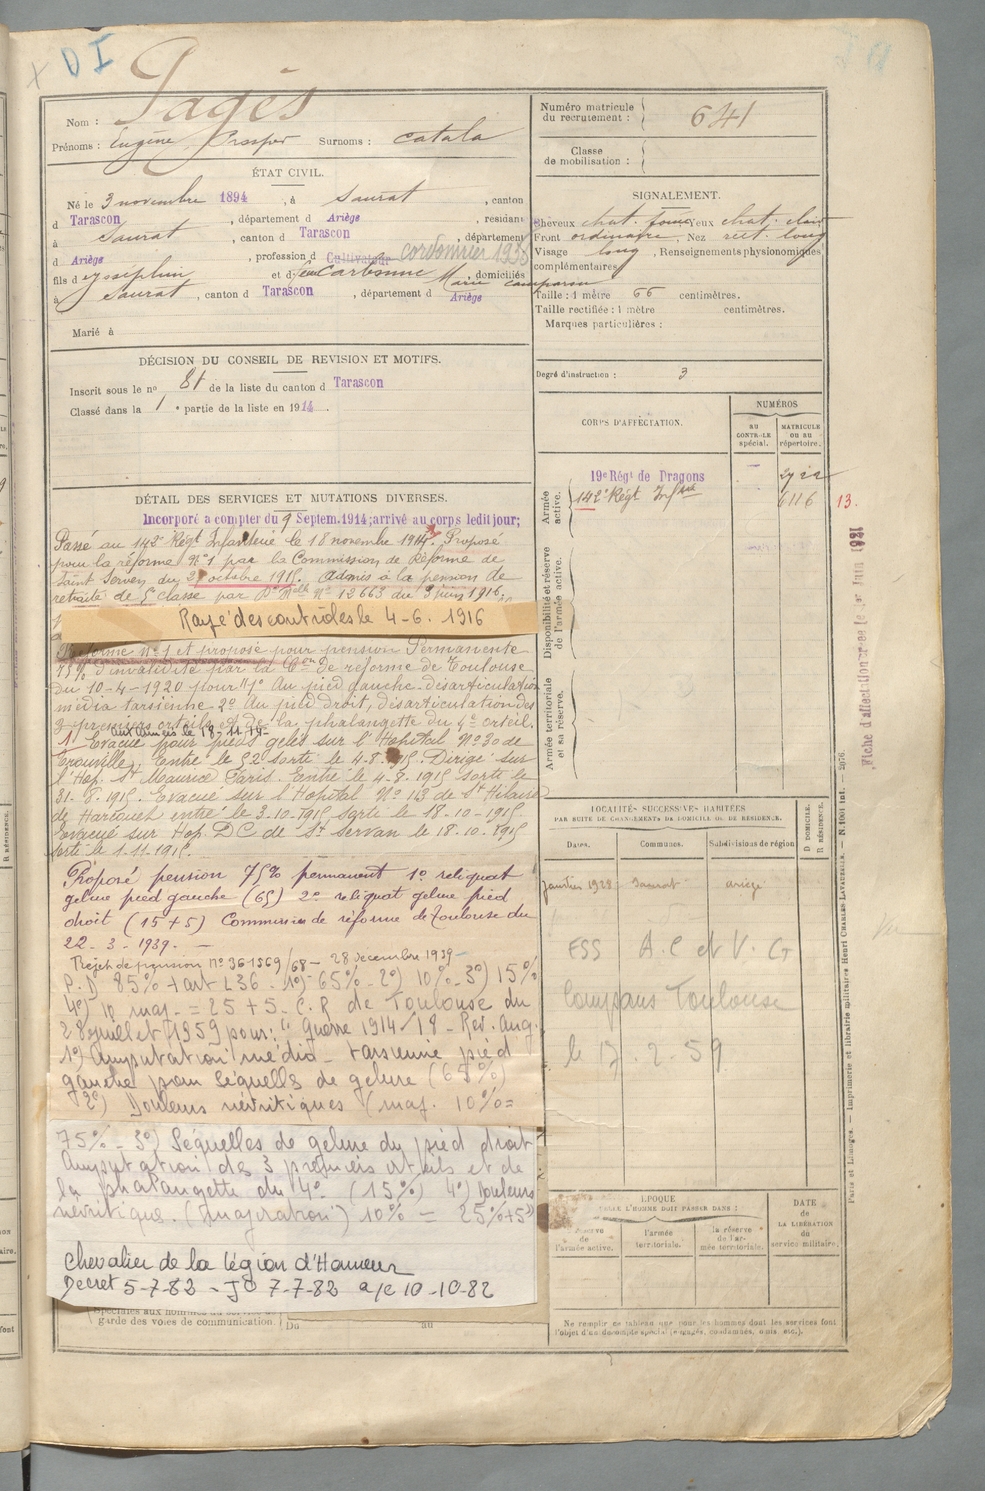 DI
Nom : Pagès
Prénoms : Eugène Prosper Surnoms : Catala
ÉTAT CIVIL.
Né le 3 novembre 1894, à Saurat, canton
d Tarascon, département d Ariège, résidant
à Saurat, canton d Tarascon, département
d Ariège, profession d Cultivateur cordonnier 1938
fils d Joseph et d feu Carbonne Marie, domiciliés
à Saurat, canton d Tarascon, département d Ariège
Marié à
DÉCISION DU CONSEIL DE REVISION ET MOTIFS.
Inscrit sous le no 81 de la liste du canton d Tarascon
Classé dans la 1 e partie de la liste en 1914.
DÉTAIL DES SERVICES ET MUTATIONS DIVERSES.
Incorporé à compter du 9 Septem. 1914; arrivé au corps ledit jour;
Passé au 142e Régt Infanterie le 18 novembre 1914. Proposé
pour la réforme N°1 par la Commission de Réforme de
Saint Servan du 2 octobre 1915. Admis à la pension de
retraite de 5e classe par Don Mlle No 12663 du 3 juin 1916.
Rayé des contrôles le 4-6. 1916
Réforme No 1 et proposé pour pension Permanente
75% d'invalidité par la Con de réforme de Toulouse
du 10-4-1920 pour "1° Au pied gauche désarticulation
média tarsienne 2° Au pied droit, désarticulation des
3 premiers orteils et de la phalangette du 4e orteil.
aux Armées le 18-11-14
1. Evacué pour pieds gelés sur l'Hopital No 30 de
Trouville, Entré le sorti le 4-8-1915. Dirigé sur
l'Hop. St Maurice Paris. Entré le 4-8-1915 sorti le
31-8-1915. Evacué sur l'Hopital No 113 de St Hilaire
de Harcouet entré le 3-10-1915 sorti le 18-10-1915.
Evacué sur Hop. D.C de St Servan le 18.10.1915
sorti le 1-11-1915.
Proposé pension 75% permanent 1° reliquat
gelure pied gauche (65) 2° reliquat gelure pied
droit (15+5) Commission de réforme de Toulouse du
22-3-1939.-
Rejet de pension no 361569/68- 28 décembre 1939-
P.D 85% + art L36. 1°) 65% - 2°) 10% - 3°) 15%
4°) 10 maj. = 25+5. C.R de Toulouse du
28 juillet 1959 pour: "Guerre 1914/18 - Rev. Aug.
1°) Amputation médio-tarsienne pied
gauche pour séquelles de gelure (65%)
2°) Douleurs névritiques (maj. 10% =
75% - 3°) Séquelles de gelure du pied droit
Amputation des 3 premiers orteils et de
la phalangette du 4e (15%) 4°) Douleurs
névritique. 10% = 25%+5"
Chevalier de la légion d'Honneur
Decret 5-7-82 - JO 7-7-82 a/c 10-10-82
(spéciales aux hommes du service de
garde des voies de communication. Du au
Numéro matricule du recrutement : 641
Classe de mobilisation :
SIGNALEMENT.
Cheveux chat. foncé Yeux chat. clair
Front ordinaire, Nez rect. long
Visage long, Renseignements physionomiques
complémentaires
Taille : 1 mètre 66 centimètres.
Taille rectifiée : 1 mètre centimètres.
Marques particulières :
Degré d'instruction : 3
CORPS D'AFFECTATION.
NUMÉROS
AU CONTROLE spécial.
MATRICULE OU AU répertoire.
Armée active.
19e Régt de Dragons
142e Régt Infrie 6116
13.
Disponibilité et réserve de l'armée active.
Armée territoriale et sa réserve.
Fiche d'affectation créée le 1er Juin 1921
LOCALITÉS SUCCESSIVES HABITÉES
PAR SUITE DE CHANGEMENTS DE DOMICILE OU DE RÉSIDENCE.
Dates. Communes. Subdivisions de région
D DOMICILE. R RÉSIDENCE.
Janvier 1928 Saurat Ariège
ESS A.C et V. G
Compans Toulouse
le 17.2.59
ÉPOQUE
A LAQUELLE L'HOMME DOIT PASSER DANS :
la réserve de l'armée active.
l'armée territoriale.
la réserve de l'armée territoriale.
DATE de la LIBÉRATION du service militaire.
Ne remplir ce tableau que pour les hommes dont les services font
l'objet d'un décompte spécial (engagés, condamnés, omis etc.).
Paris et Limoges. — Imprimerie et librairie militaires Henri CHARLES-LAVAUZELLE. — N. 100 int. — 2076.